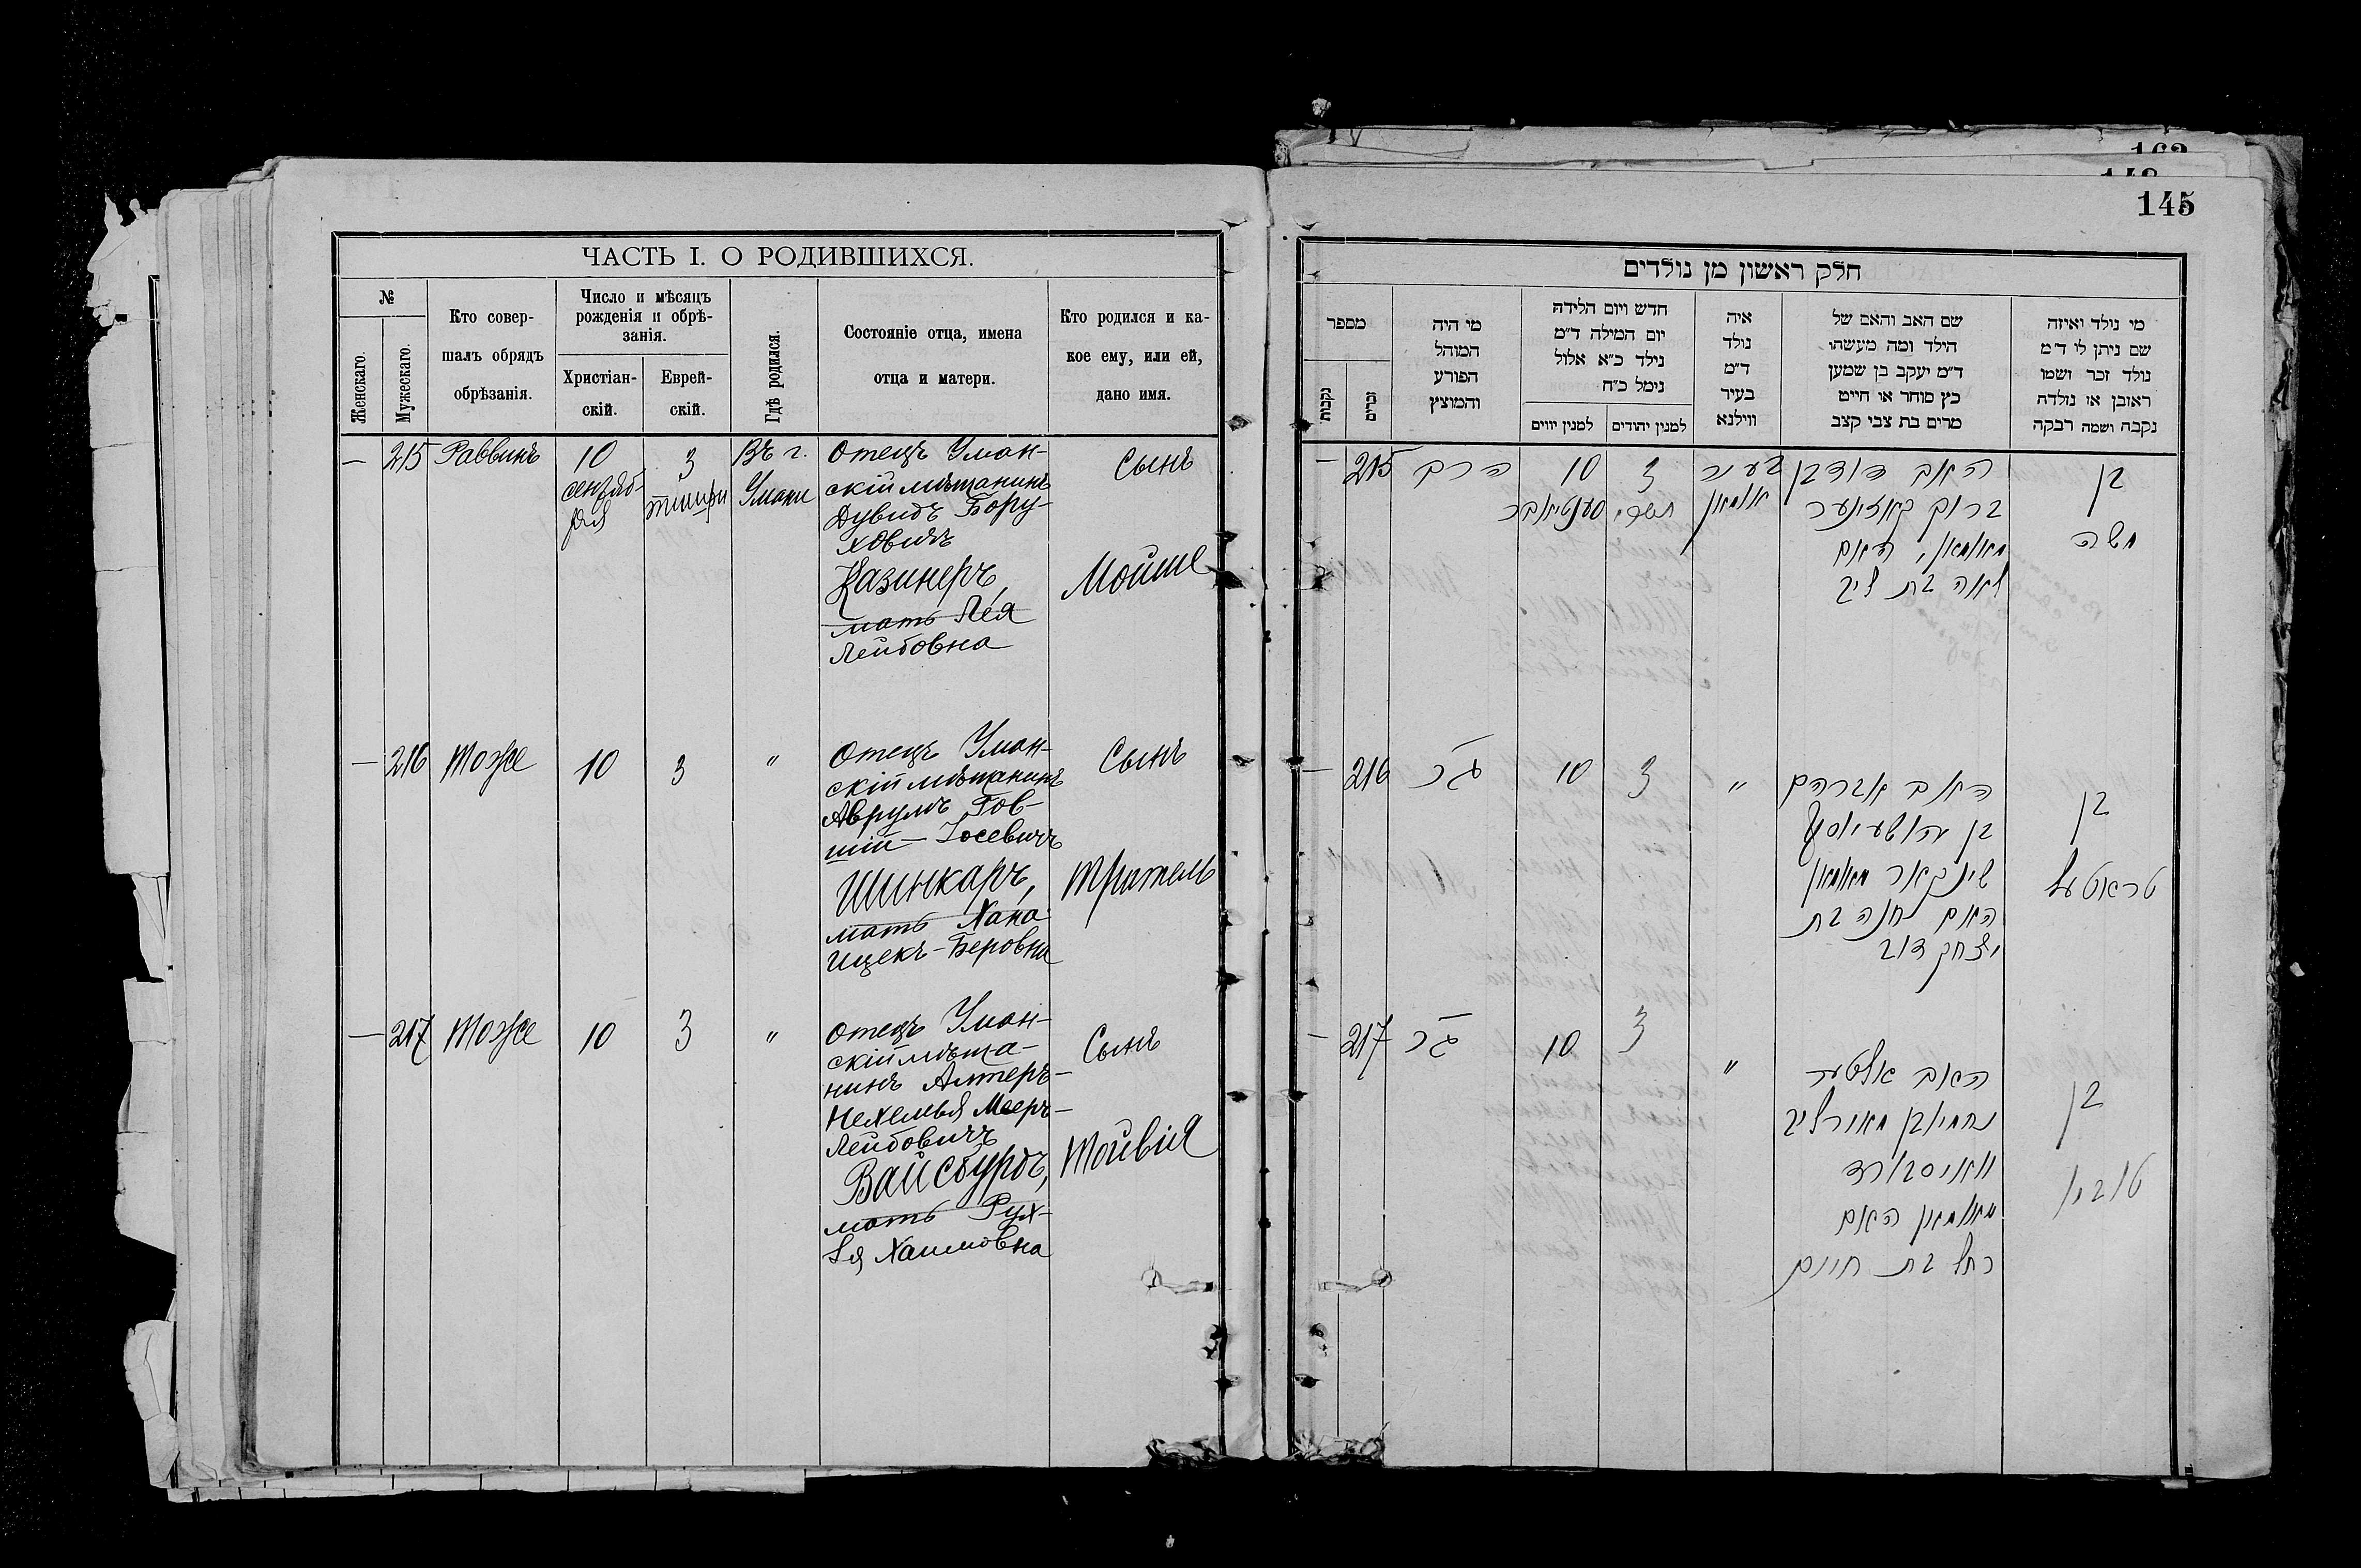 163
148
145
ЧАСТЬ I. О РОДИВШИХСЯ.
№
Женскаго.
Мужескаго.
Кто совер-
шалъ обрядъ
обрѣзанія.
Число и мѣсяцъ
рожденія и обрѣ-
занія.
Христіан-
скій.
Еврей-
скій.
Гдѣ родился.
Состояніе отца, имена
отца и матери.
Кто родился и ка-
кое ему, или ей,
дано имя.
— 215 Раввинъ
10
сентяб-
ря
3
тишри
Въ г.
Умани
Отецъ Уман-
скій мѣщанинъ
Дувидъ Бору-
ховичъ
Казинеръ,
мать Лея
Лейбовна
Сынъ
Мойше
— 216 Тоже
10
3
"
Отецъ Уман-
скій мѣщанинъ
Аврумъ Гов-
шій-Іосевичъ
Шинкаръ,
мать Хана
Ицекъ-Беровна
Сынъ
Тратель
— 217 Тоже
10
3
"
Отецъ Уман-
скій мѣща-
нинъ Алтеръ-
Нехемья Меер-
Лейбовичъ
Вайсбурдъ,
мать Рух-
ля Хаимовна
Сынъ
Тойвія
חלק ראשון מן נולדים
מספר
נקבות
זכרים
מי היה
המוהל
הפורע
והמוצץ
חדש ויום הלידה
יום המילה ד״מ
נולד כ״א אלול
נימל כ״ח
למנין יווים
למנין יהודים
איה
נולד
ד״מ
בעיר
ווילנא
שם האב והאם של
הילד ומה מעשהו
ד״מ יעקב בן שמען
כץ סוחר או חייט
מרים בת צבי קצב
מי נולד ואיזה
שם ניתן לו ד״מ
נולד זכר ושמו
ראובן או נולדה
נקבה ושמה רבקה
— 215
הרב
10
סענטיאבר
3
תשרי
בעיר
אומאן
האב דוד בן
ברוך קאזינער
מאומאן, האם
לאה בת ליב
בן
משה
— 216
הנ״ל
10
3
"
האב אברהם
בן יהושע יוסף
שינקאר מאומאן
האם חנה בת
יצחק דוב
בן
טראטעל
— 217
10
3
"
האב אלטער
נחמי׳ בן מאיר ליב
וואיסבורד
מאומאן האם
רחל בת חיים
בן
טובי׳